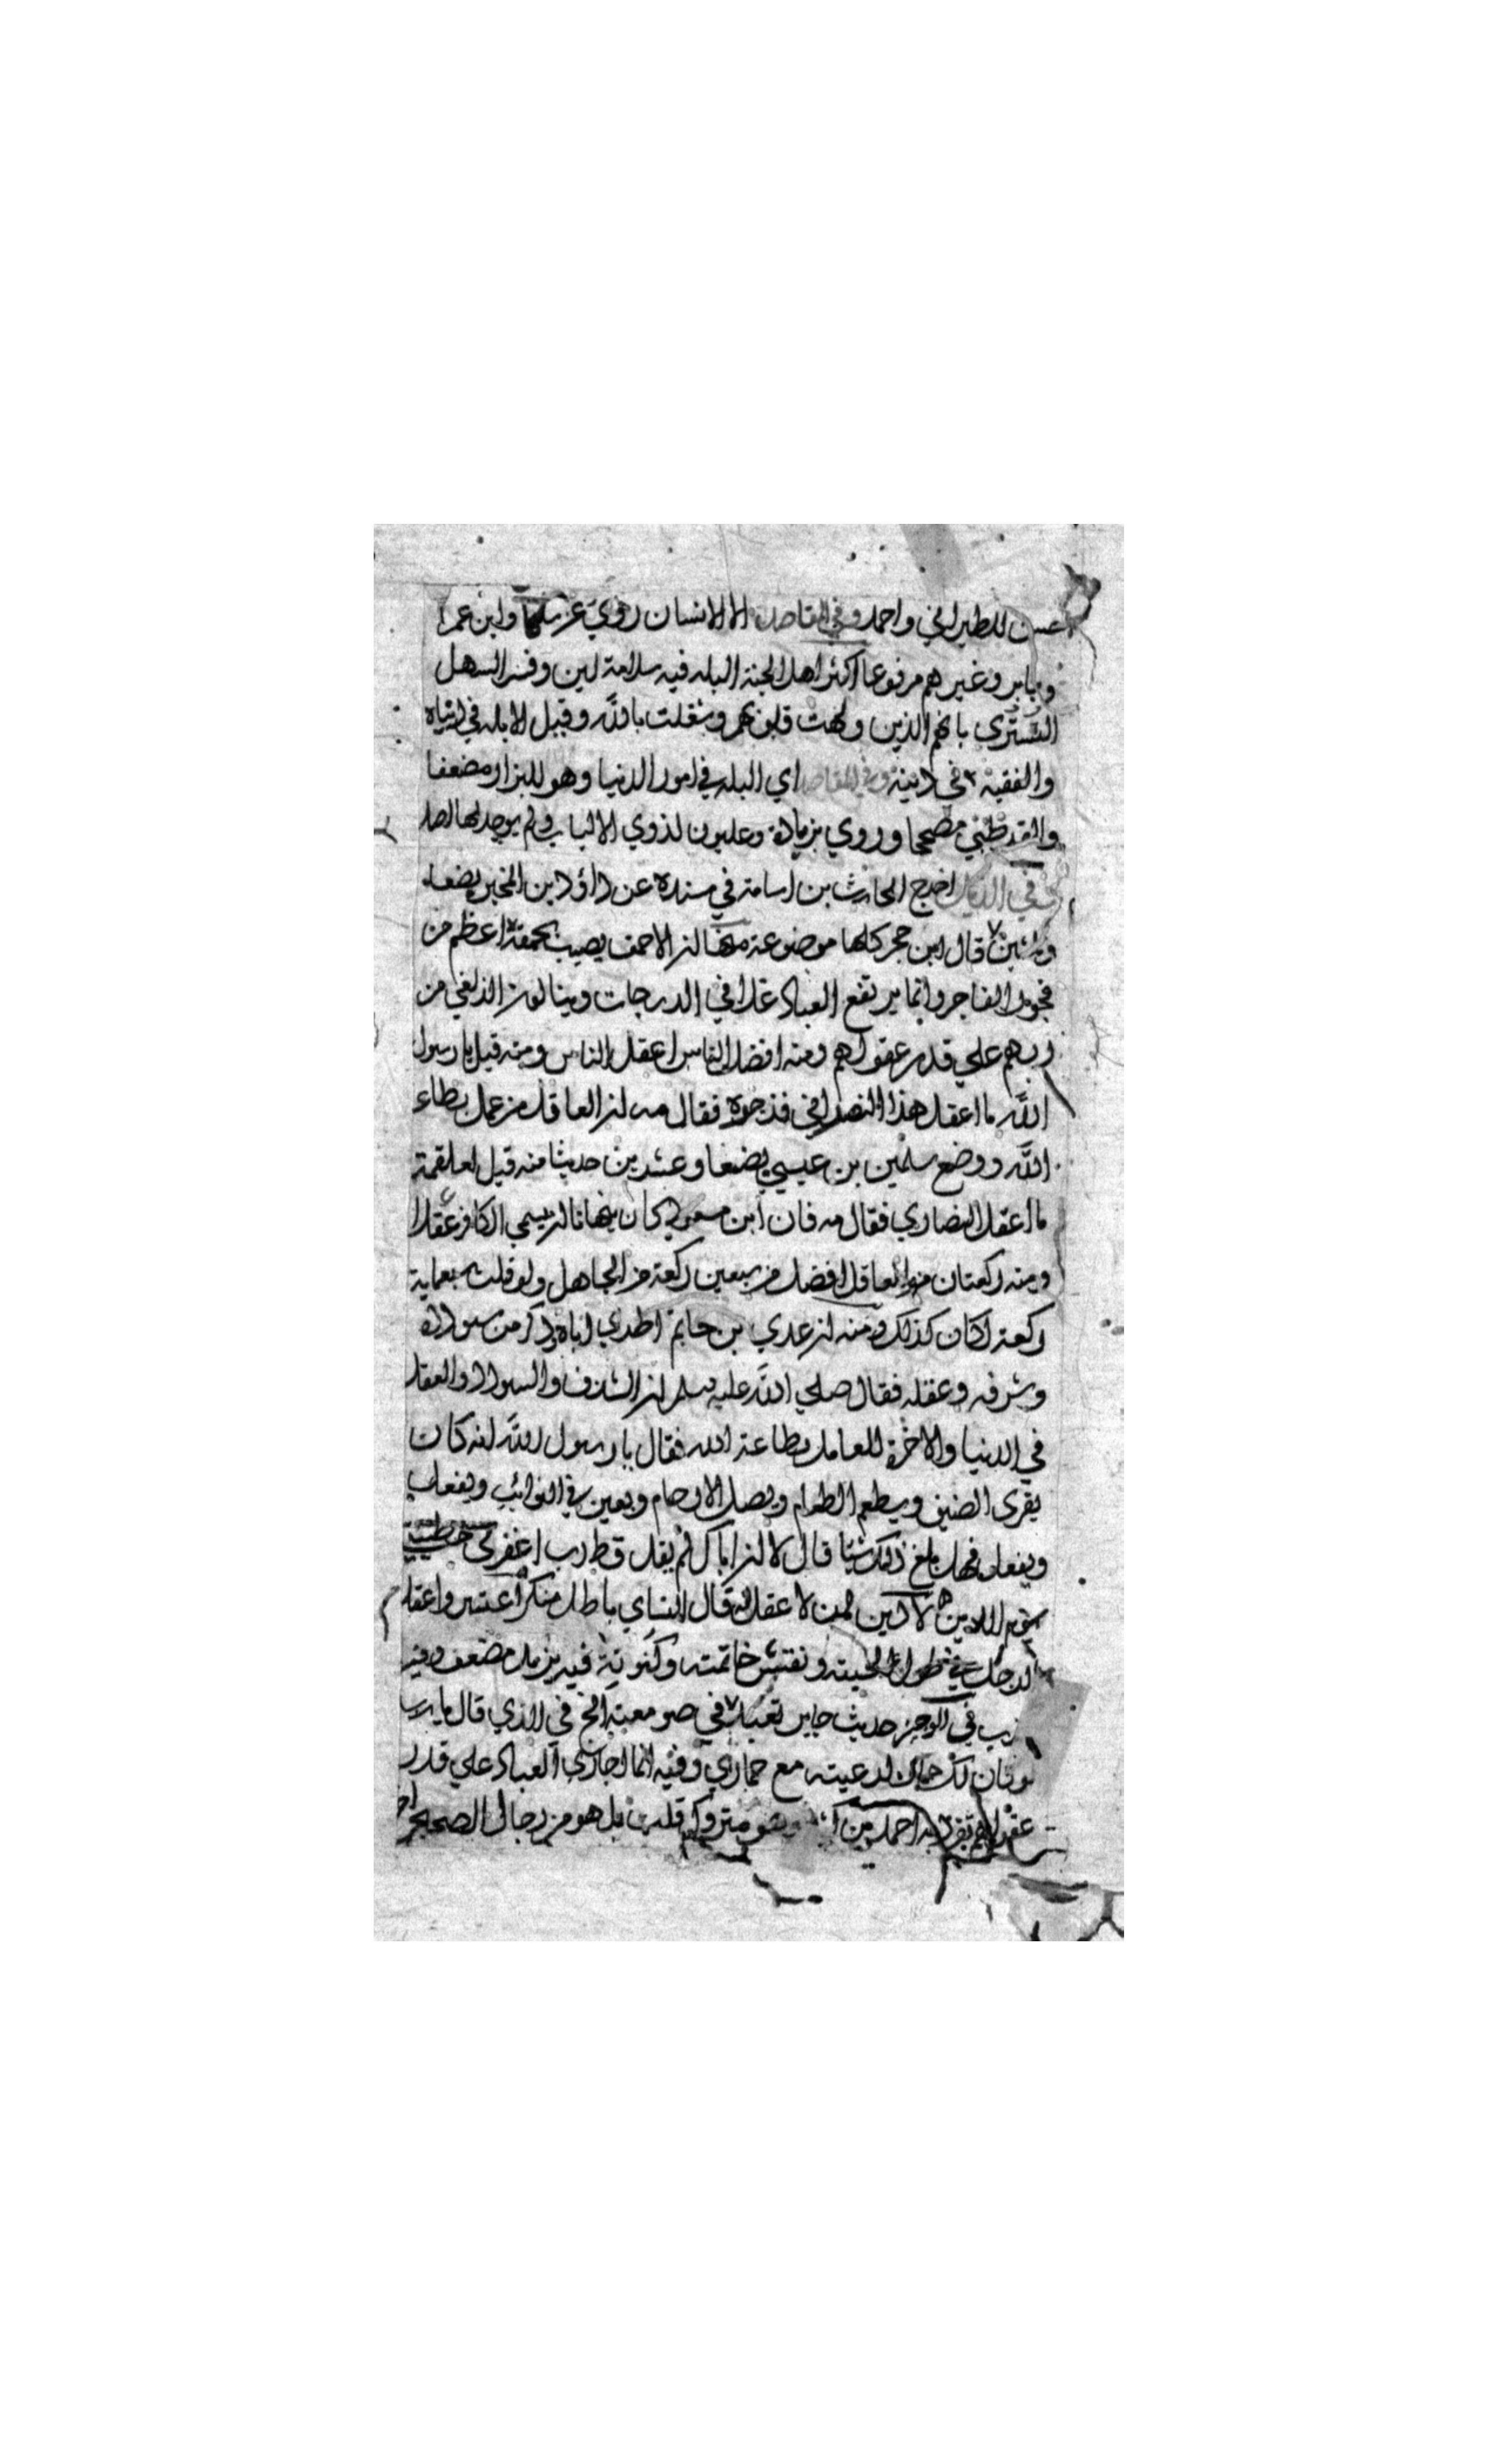 حسن للطبراني واحمد وفي المقاصد الا الانسان روي عن سلمان وابن عمر
وجابر وغيرهم مرفوعا اكثر اهل الجنة البله فيه سلامة لين وفسر السهل
التستري بانهم الذين ولهت قلوبهم وشغلت بالله وقيل الابله في دنياه
والفقيه في دينه وفي المقاصد اي البله في امور الدنيا وهو للبزار مضعفا
والقرطبي مصححا وروي بزيادة وعليون لذوي الالباب ولم يوجد لها اصل
في الذيل اخرج الحارث بن اسامة في مسنده عن داؤد بن المحبر بضعا
وثلثين قال ابن حجر كلها موضوعة منها ان الاحمق يصيب بحمقه اعظم من
فجور الفاجر وانما يرتفع العباد غدا في الدرجات وينالون الزلفي من
ربهم علي قدر عقولهم ومنه افضل الناس اعقل الناس ومنه قيل يا رسول
الله ما اعقل هذا النصراني فزجره فقال مه ان العاقل من عمل بطاعة
الله ووضع سليمن بن عيسي بضعا وعشرين حديثا منه قيل لعلقمة
ما اعقل النصاري فقال مه فان ابن مسعود كان ينهانا ان يسمي الكافر عقلا
ومنه ركعتان من العاقل افضل من سبعين ركعة من الجاهل ولو قلت سبعماية
ركعة لكان كذلك ومنه ان عدي بن حاتم اطري اباه وذكر من سودده
وشرفه وعقله فقال صلي الله عليه وسلم ان الشرف والسودد والعقل
في الدنيا والاخرة للعامل بطاعة الله فقال يا رسول الله انه كان
يقرى الضيف ويطعم الطعام ويصل الارحام ويعين في النوائب ويفعل
ويفعل فهل بلغ ذلك شيئا قال لا ان اباك لم يقل قط رب اغفر لي خطيئتي
يوم الدين لا دين لمن لا عقل له قال النساي باطل منكر اعتبروا عقل
الرجل في طول لحيته ونقش خاتمه وكنوته فيه مضعف وفيه
في الوجيز حديث جابر تعبد في صومعته الخ في الذي قال يا رب
لو كان لك حمار لرعيته مع حماري وفيه انما اجازي العباد علي قدر
عقولهم تفرد به احمد بن وهو متروك قلت بل هو من رجال الصحيح